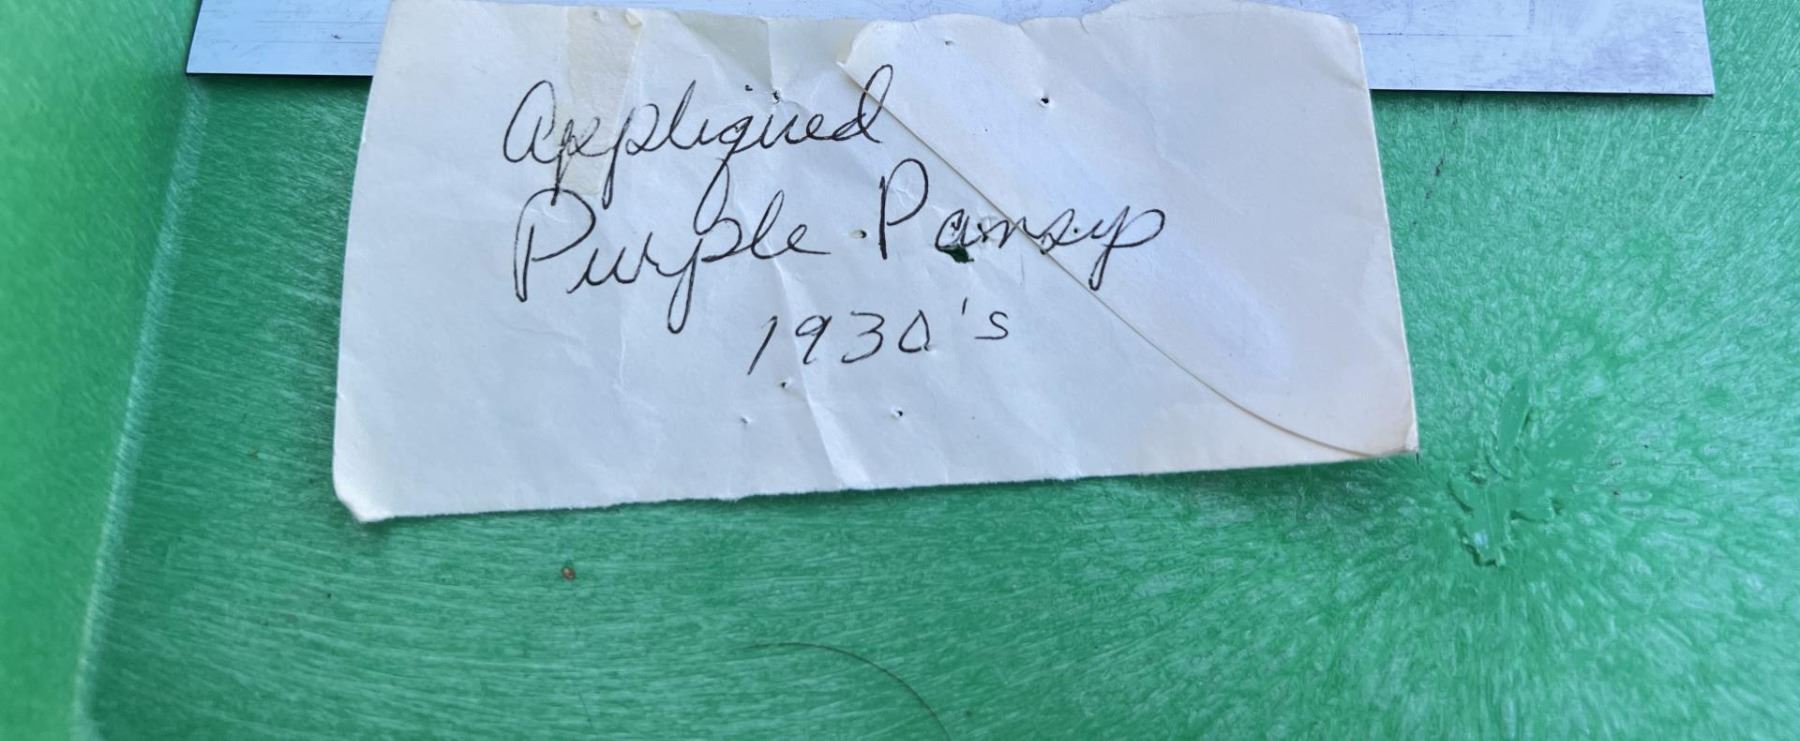 Appliqued
Purple Pansy
1930's